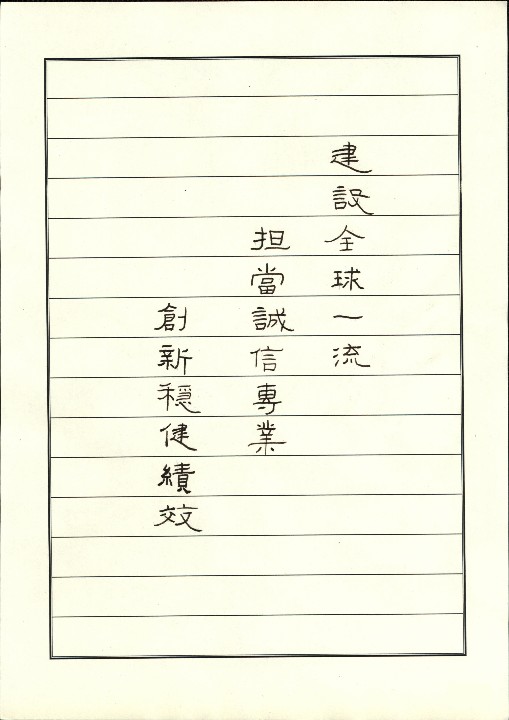 建設全球一流
担當誠信專業
創新穩健績效